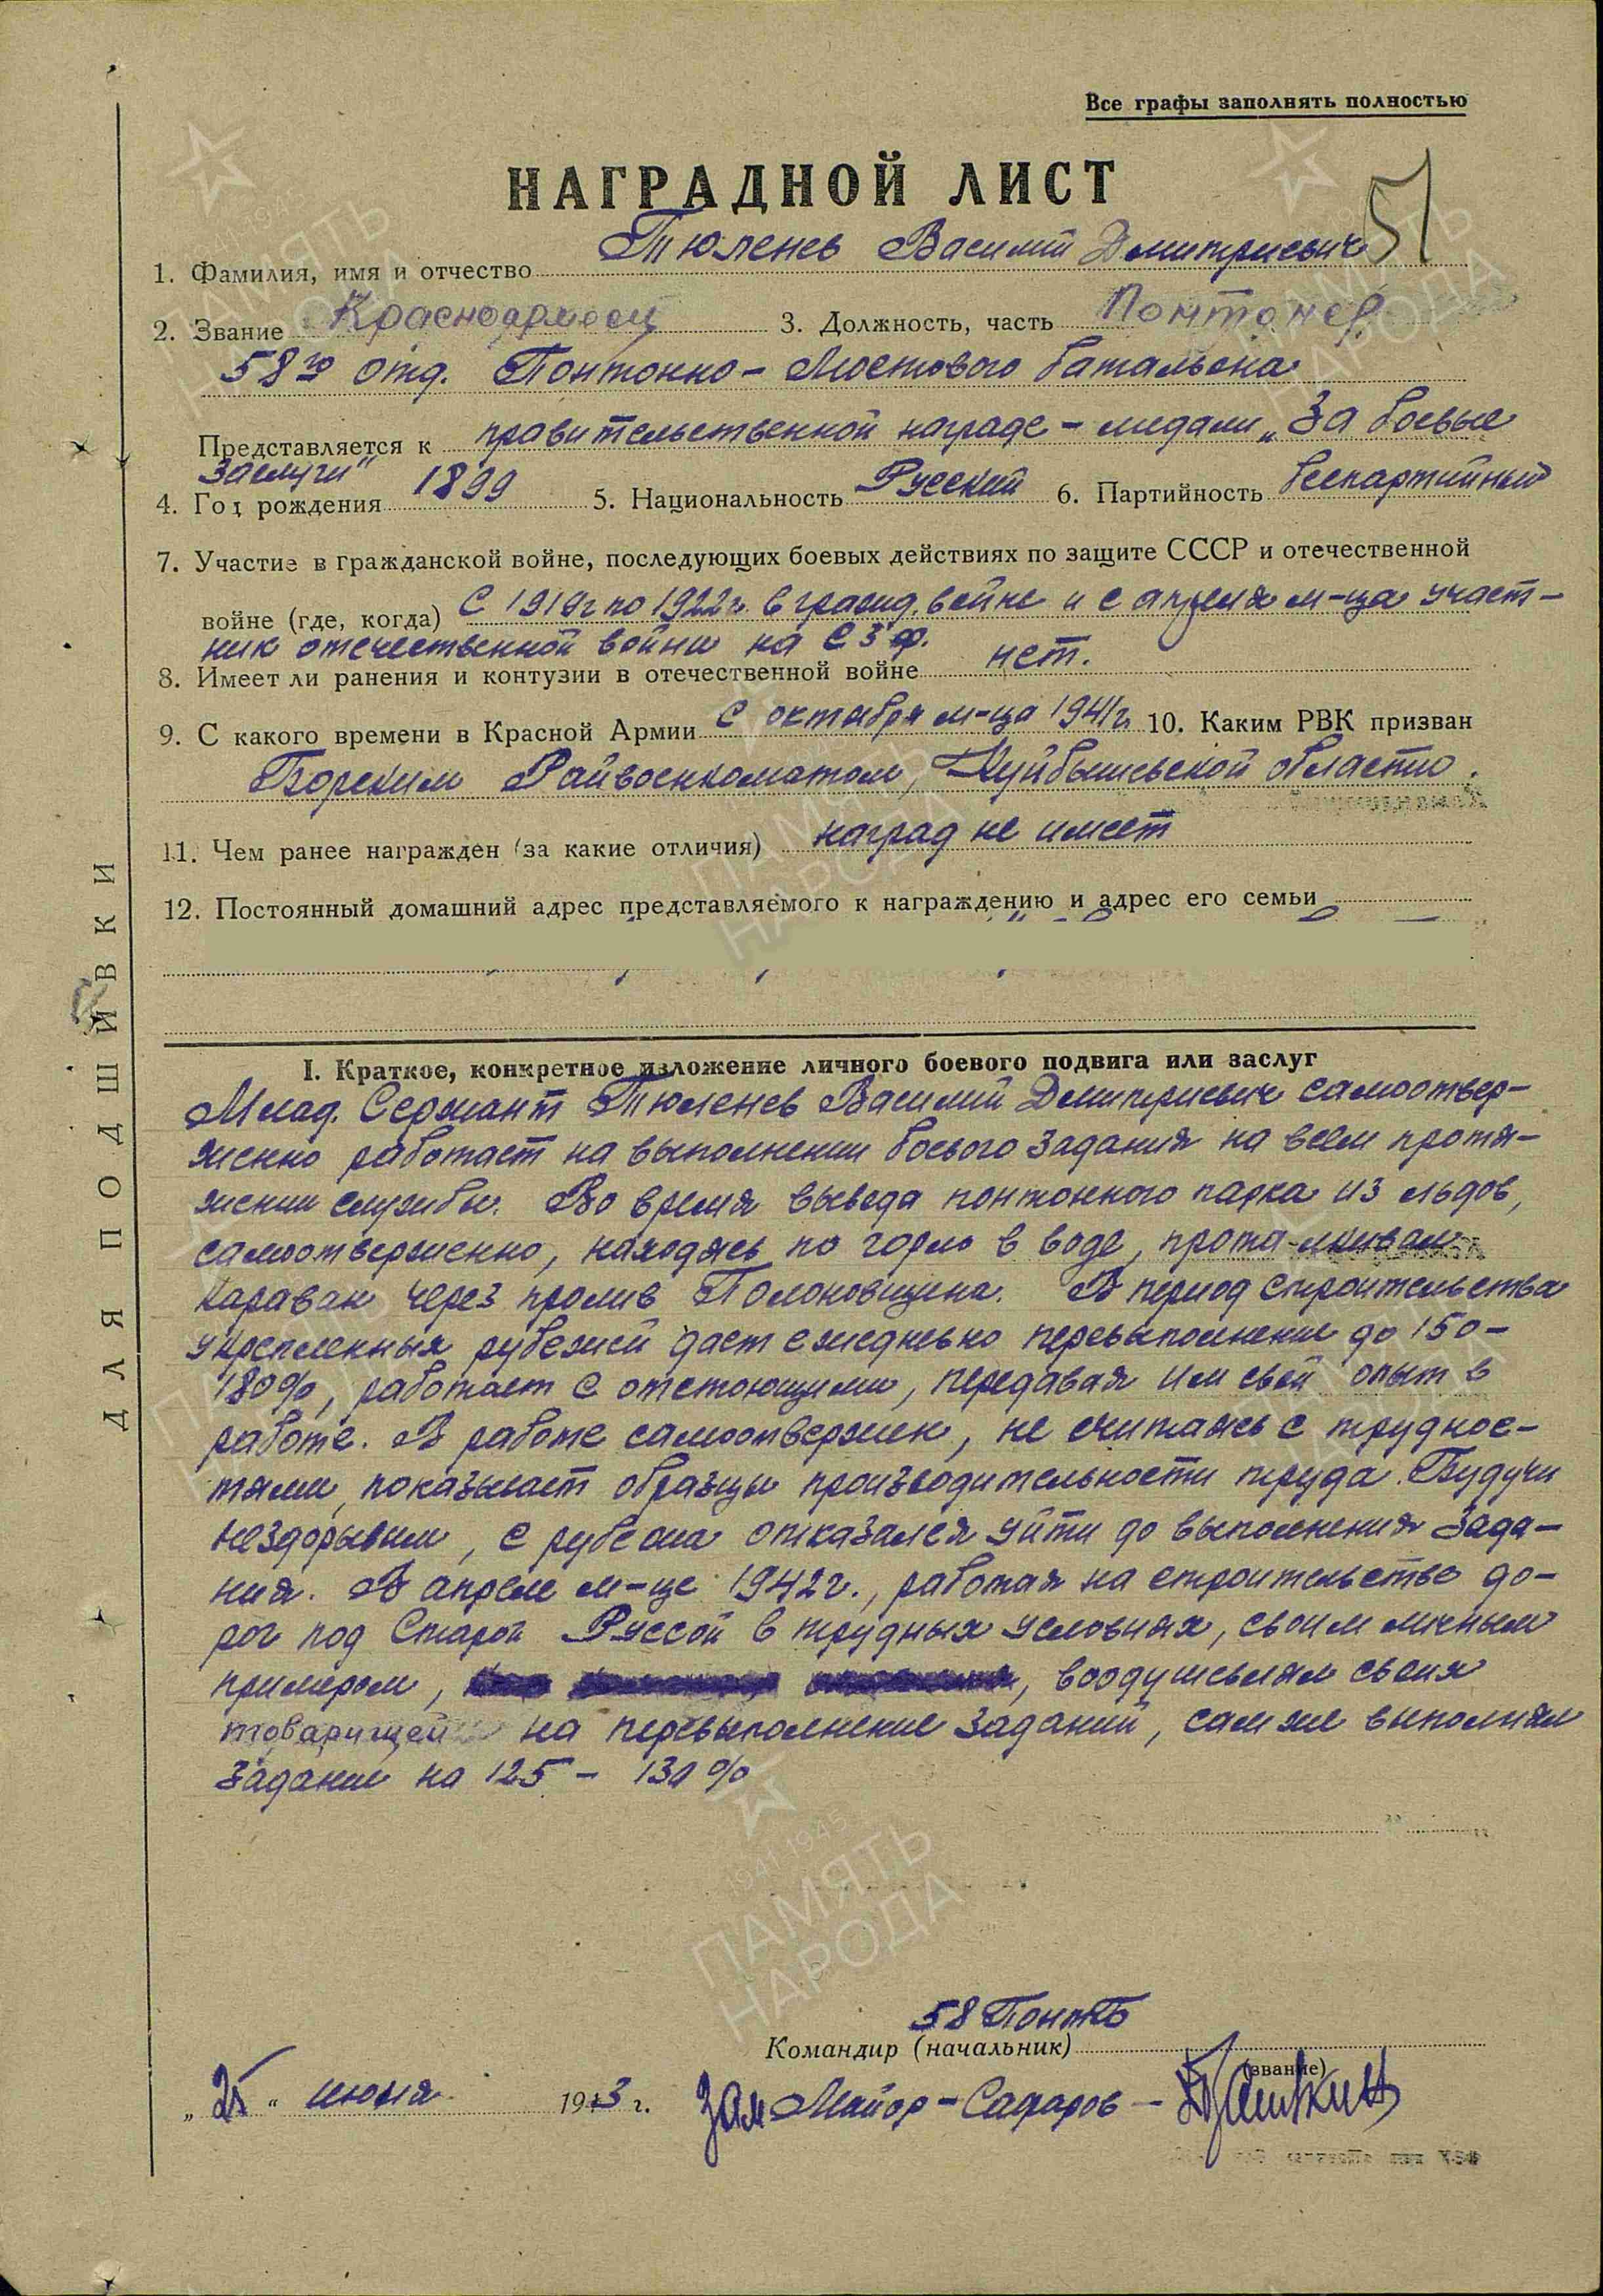 Все графы заполнять полностью
НАГРАДНОЙ ЛИСТ
51
1. Фамилия, имя и отчество Тюленев Василий Дмитриевич
2. Звание Красноармеец 3. Должность, часть Понтонер
58го отд. Понтонно-Мостового батальона
Представляется к правительственной награде - медали „За боевые
заслуги"
4. Год рождения 1899 5. Национальность Русский 6. Партийность беспартийный
7. Участие в гражданской войне, последующих боевых действиях по защите СССР и отечественной
войне (где, когда) С 1919г по 1922г. в гражд. войне и с апреля м-ца участ-
ник отечественной войны на СЗФ.
8. Имеет ли ранения и контузии в отечественной войне нет.
9. С какого времени в Красной Армии с октября м-ца 1941г. 10. Каким РВК призван
Борским Райвоенкоматом, Куйбышевской области.
11. Чем ранее награжден (за какие отличия) наград не имеет
12. Постоянный домашний адрес представляемого к награждению и адрес его семьи
ДЛЯ ПОДШИВКИ
I. Краткое, конкретное изложение личного боевого подвига или заслуг
Млад. Сержант Тюленев Василий Дмитриевич самоотвер-
женно работает на выполнении боевого задания на всем протя-
жении службы. Во время вывода понтонного парка из льдов,
самоотверженно, находясь по горло в воде, прота-лкивал
караван через пролив Полоновщина. В период строительства
укрепленных рубежей дает ежедневно перевыполнение до 150-
180%, работает с отстающими, передавая им свой опыт в
работе. В работе самоотвержен, не считаясь с труднос-
тями, показывает образцы производительности труда. Будучи
нездоровым, с рубежа отказался уйти до выполнения зада-
ния. В апреле м-це 1942г., работая на строительстве до-
рог под Старой Руссой в трудных условиях, своим личным
примером, воодушевлял своих
товарищей на перевыполнение заданий, сам же выполнял
задание на 125 - 130%
58 ПонтБ
Командир (начальник)
(звание)
„25" июня 1943 г. Зам Майор - Сафаров -
ПАМЯТЬ
НАРОДА
1941 1945